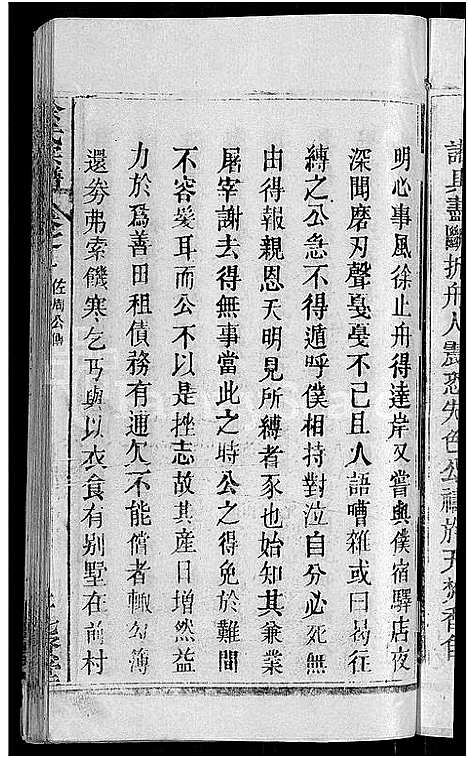 諸具盡斷折舟人盡恐失色公禱於天焚香自
明心事風徐止舟得達岸又嘗與僕宿驛店夜
深聞磨刃聲戞戞不已且人語嘈雜或曰曷往
縛之公急不得遁呼僕相持對泣自分必死無
由得報親恩天明見所縛者豕也始知其兼業
屠宰謝去得無事當此之時公之得免於難間
不容髮耳而公不以是挫志故其產日增然益
力於爲善田租債務有逋欠不能償者輒勾簿
還券弗索饑寒乞丐與以衣食有别墅在前村
佐周公傳